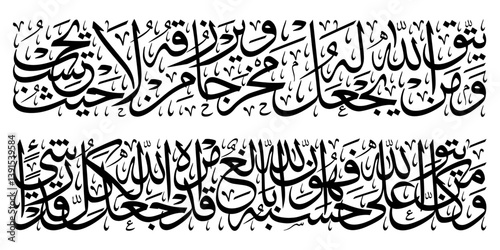 ومن يتق الله يجعل له مخرجا ويرزقه من حيث لا يحتسب
ومن يتوكل على الله فهو حسبه إن الله بالغ أمره قد جعل الله لكل شيء قدرا
Adobe Stock | #1391539584